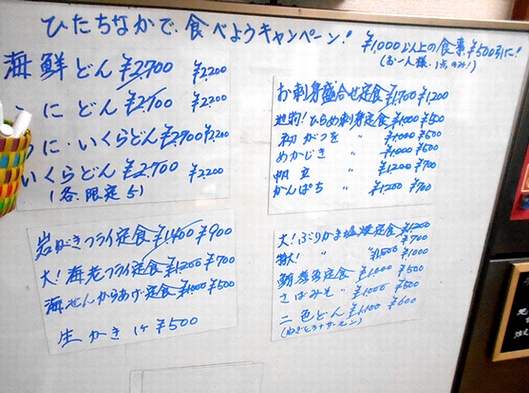 ひたちなかで、食べようキャンペーン!
¥1000以上の食事、¥500引に!
(お一人様、1点のみ!)
海鮮どん ¥2700 ¥2200
うにどん ¥2700 ¥2200
うに・いくらどん ¥2700 ¥2200
いくらどん ¥2700 ¥2200
(各、限定5)
お刺身盛合せ定食 ¥1700 ¥1200
地物!ひらめ刺身定食 ¥1000 ¥500
初がつを 〃 ¥1000 ¥500
めかじき 〃 ¥1000 ¥500
帆立 〃 ¥1200 ¥700
かんぱち 〃 ¥1200 ¥700
岩がきフライ定食 ¥1400 ¥900
大!海老フライ定食 ¥1200 ¥700
からあげ定食 ¥1000 ¥500
生かき 1ケ ¥500
大!ぶりかま塩焼定食 ¥1200 ¥700
特大! 〃 ¥1500 ¥1000
定食 ¥1000 ¥500
さばみそ 〃 ¥1000 ¥500
二色どん ¥1100 ¥600
(ねぎとろ+サーモン)